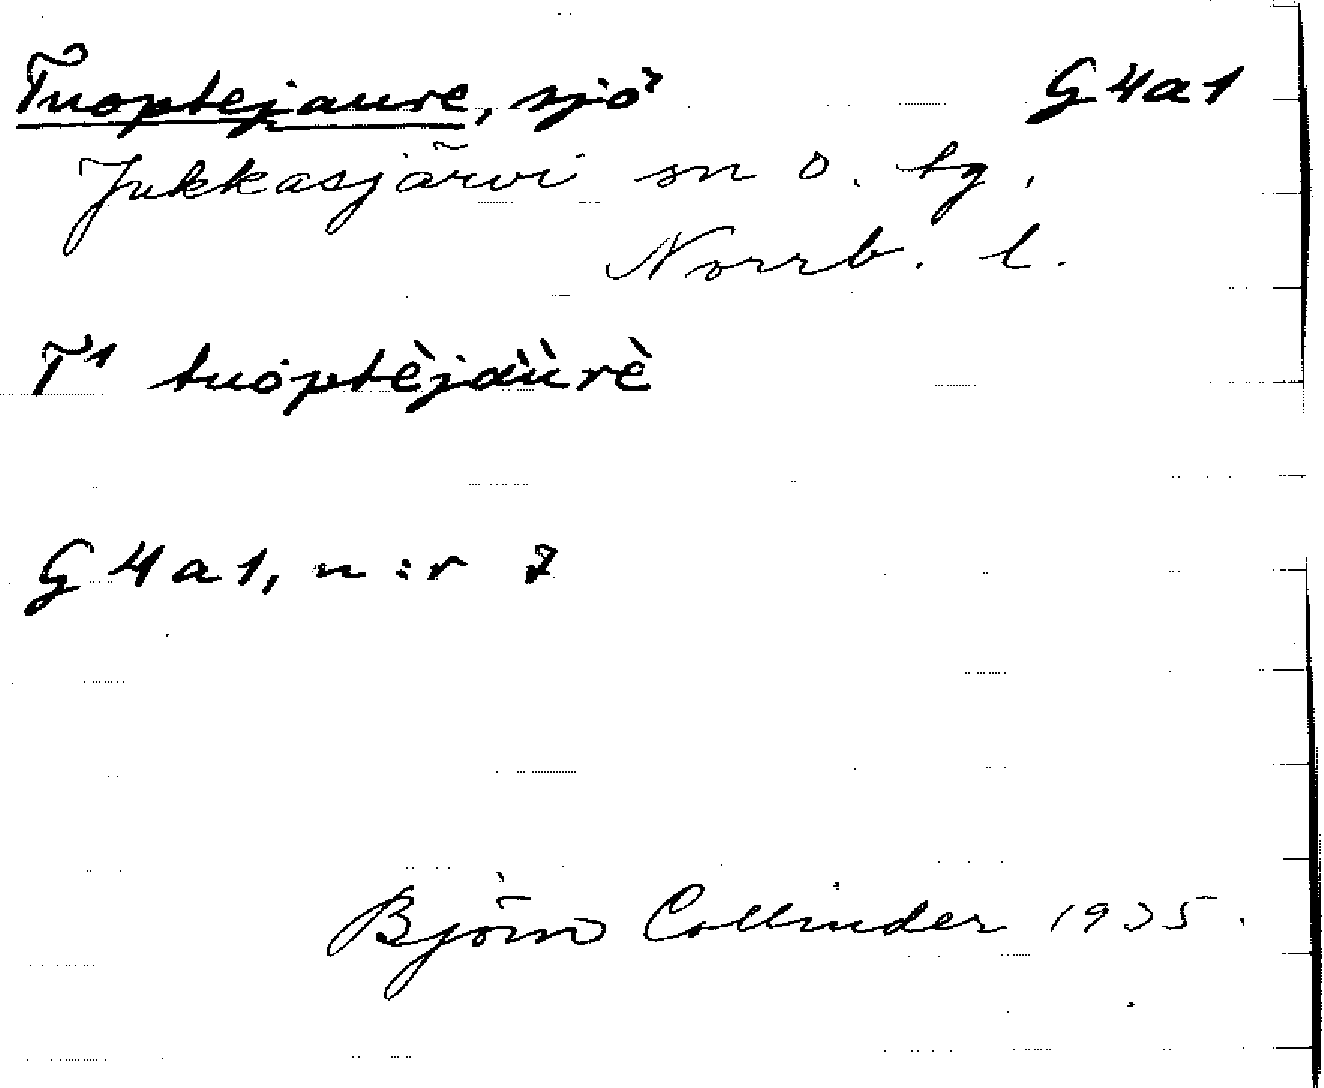 Tuoptejaure, sjö G4a1
Jukkasjärvi sn o. tg.
Norrb. l.
T¹ tuoptèjaùrè
G4a1, n:r 7
Björn Collinder 1935.